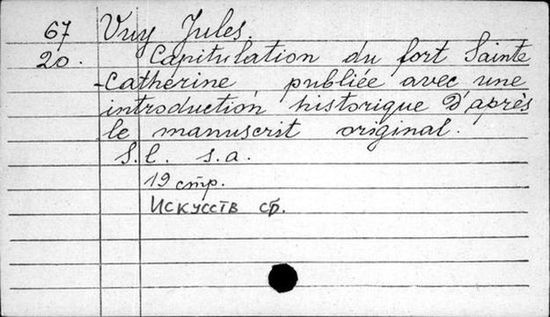 67 Vuy Jules.
20. Capitulation du fort Sainte
-Cathérine publiée avec une
introduction historique d'après
le manuscrit original.
S.l. s.a.
19 стр.
Искусств сб.